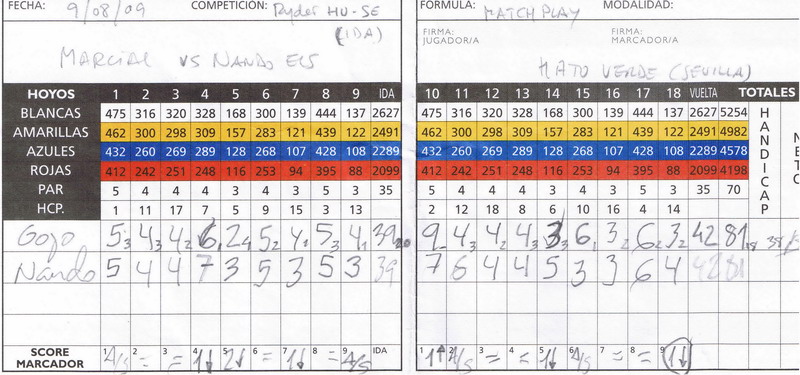 FECHA: 9/08/09 COMPETICION: Ryder HU-SE FORMULA: MATCH PLAY MODALIDAD:
(IDA) FIRMA: JUGADOR/A FIRMA: MARCADOR/A
MARCIAL VS NANDO ELS HATO VERDE (SEVILLA)
HOYOS 1 2 3 4 5 6 7 8 9 IDA 10 11 12 13 14 15 16 17 18 VUELTA TOTALES
BLANCAS 475 316 320 328 168 300 139 444 137 2627 475 316 320 328 168 300 139 444 137 2627 5254 HANDICAP
AMARILLAS 462 300 298 309 157 283 121 439 122 2491 462 300 298 309 157 283 121 439 122 2491 4982
AZULES 432 260 269 289 128 268 107 428 108 2289 432 260 269 289 128 268 107 428 108 2289 4578
ROJAS 412 242 251 248 116 253 94 395 88 2099 412 242 251 248 116 253 94 395 88 2099 4198
PAR 5 4 4 4 3 4 3 5 3 35 5 4 4 4 3 4 3 5 3 35 70
HCP. 1 11 17 7 5 9 15 3 13 2 12 18 8 6 10 16 4 14
Gojo 5 3 4 3 4 2 6 1 2 4 5 2 4 1 5 3 4 1 39 20 9 4 3 4 2 4 3 3 3 6 1 3 2 6 2 3 2 42 81 18 38
Nando 5 4 4 7 3 5 3 5 3 39 7 6 4 4 5 3 3 6 4 42 81
SCORE MARCADOR 1 A/S 2 = 3 = 4 1↓ 5 2↓ 6 = 7 1↓ 8 = 9 A/S IDA 1 1↑ 2 A/S 3 = 4 = 5 1↓ 6 A/S 7 = 8 = 9 1↓